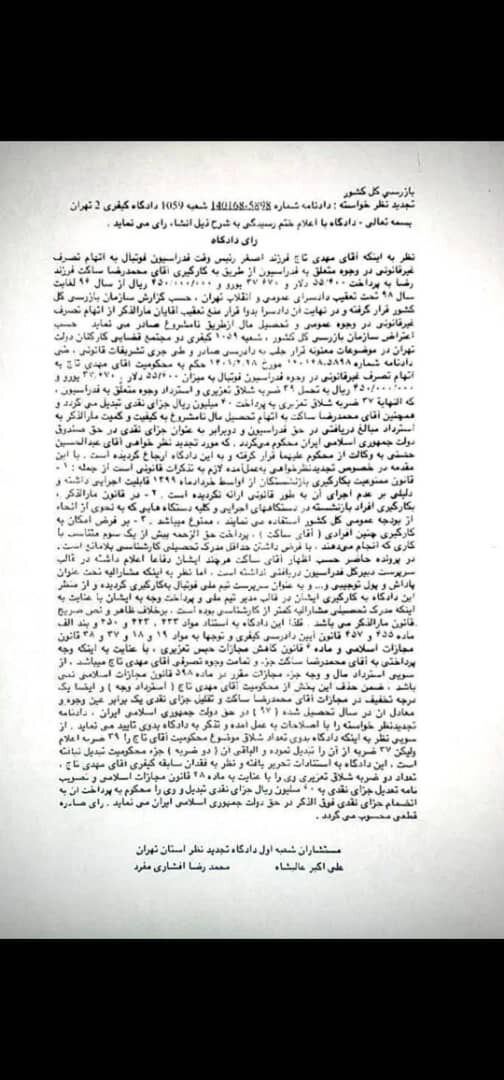 بازرسی کل کشور
تجدید نظر خواسته : دادنامه شماره 140168-5898 شعبه 1059 دادگاه کیفری 2 تهران
بسمه تعالی - دادگاه با اعلام ختم رسیدگی به شرح ذیل انشاء رای می نماید .
رای دادگاه
نظر به اینکه آقای مهدی تاج فرزند اصغر رئیس وقت فدراسیون فوتبال به اتهام تصرف
غیرقانونی در وجوه متعلق به فدراسیون از طریق به کارگیری آقای محمدرضا ساکت فرزند
رضا به پرداخت ۵۵/۴۰۰ دلار و ۳۷۶۷۰ یورو و ۴۵۰/۰۰۰/۰۰۰ ریال از سال ۹۶ لغایت
سال ۹۸ تحت تعقیب دادسرای عمومی و انقلاب تهران ، حسب گزارش سازمان بازرسی کل
کشور قرار گرفته و در نهایت آن دادسرا بدوا قرار منع تعقیب آقایان مارالذکر از اتهام تصرف
غیرقانونی در وجوه عمومی و تحصیل مال ازطریق نامشروع صادر می نماید حسب
اعتراض سازمان بازرسی کل کشور ، شعبه ۱۰۵۹ کیفری دو مجتمع قضایی کارکنان دولت
تهران در موضوعات معنونه قرار جلب به دادرسی صادر و طی جری تشریفات قانونی ، طی
دادنامه شماره مورخ ۱۴۰۱/۲/۲۸ حکم به محکومیت آقای مهدی تاج به
اتهام تصرف غیرقانونی در وجوه فدراسیون فوتبال به میزان ۵۵/۴۰۰ دلار ، ۳۷/۶۷۰ یورو و
ریال به تحمل ۳۹ ضربه شلاق تعزیری و استرداد وجوه متعلق به فدراسیون ،
که النهایة ۳۷ ضربه شلاق تعزیری به پرداخت میلیون ریال جزای نقدی تبدیل می گردد و
همچنین آقای محمدرضا ساکت به اتهام تحصیل مال نامشروع به کیفیت و کمیت مارالذکر به
استرداد مبالغ دریافتی در حق فدراسیون و دوبرابر به عنوان جزای نقدی در حق صندوق
دولت جمهوری اسلامی ایران محکوم می‌گردد ، که مورد تجدید نظر خواهی آقای عبدالحسین
به وکالت از محکوم علیهما قرار گرفته و به این دادگاه ارجاع گردیده است . با این
مقدمه در خصوص تجدیدنظرخواهی به‌عمل‌آمده لازم به تذکرات قانونی است از جمله : ۱ -
قانون ممنوعیت بکارگیری بازنشستگان از اواسط خردادماه ۱۳۹۹ قابلیت اجرایی داشته و
دلیلی بر عدم اجرای آن به طور قانونی ارائه نگردیده است . ۲ - در قانون مارالذکر ،
بکارگیری افراد بازنشسته در دستگاههای اجرایی و کلیه دستگاه هایی که به نحوی از انحاء
از بودجه عمومی کل کشور استفاده می نمایند ، ممنوع میباشد . ۳ - بر فرض امکان به
کارگیری چنین افرادی ( آقای ساکت ) ، پرداخت حق الزحمه بیش از یک سوم متناسب با
کاری که انجام می‌دهند ، با فرض داشتن حداقل مدرک تحصیلی کارشناسی بلامانع است .
در پرونده حاضر حسب اظهار آقای ساکت هرچند ایشان دفاعا اعلام داشته در قالب
سرپرست دبیرکل فدراسیون دریافتی نداشته است . اما نظر به اینکه مشارالیه تحت عنوان
پاداش و پول توجیبی و... و به عنوان سرپرست تیم ملی فوتبال به‌کارگیری گردیده و از منظر
این دادگاه به کارگیری ایشان در قالب مدیر تیم ملی و پرداخت وجه به ایشان با عنایت به
اینکه مدرک تحصیلی مشارالیه کمتر از کارشناسی بوده است ، برخلاف ظاهر و نص صریح
قانون مارالذکر می باشد . فلذا این دادگاه به استناد مواد ۴۳۳ ، ۴۴۳ و ۴۵۰ و بند الف
ماده ۴۵۵ و ۴۵۷ قانون آیین دادرسی کیفری و توجها به مواد ۱۹ و ۱۸ و ۳۷ و ۳۸ قانون
مجازات اسلامی و ماده ۶ قانون کاهش مجازات حبس تعزیری ، با عنایت به اینکه وجه
پرداختی به آقای محمدرضا ساکت جزء و تمامت وجوه تصرفی آقای مهدی تاج میباشد ، از
سویی استرداد مال و وجه جزء مجازات مقرر در ماده ۵۹۸ قانون مجازات اسلامی نمی
باشد ، ضمن حذف این بخش از محکومیت آقای مهدی تاج ( استرداد وجه ) و ایضا یک
درجه تخفیف در مجازات آقای محمدرضا ساکت و تقلیل جزای نقدی یک برابر عین وجوه و
معادل آن در سال تحصیل شده ( ۹۷ ) در حق دولت جمهوری اسلامی ایران ، دادنامه
تجدیدنظر خواسته را با اصلاحات به عمل آمده و تذکر به دادگاه بدوی تایید می نماید . از
سویی نظر به اینکه دادگاه بدوی تعداد شلاق موضوع محکومیت آقای تاج را ۳۹ ضربه اعلام
ولیکن ۳۷ ضربه از آن را تبدیل نموده و الباقی آن ( دو ضربه ) جزء محکومیت تبدیل نیافته
است . این دادگاه به استنادات تحریر یافته و نظر به فقدان سابقه کیفری آقای مهدی تاج ،
تعداد دو ضربه شلاق تعزیری وی را با عنایت به ماده ۲۸ قانون مجازات اسلامی و تصویب
نامه تعدیل جزای نقدی به میلیون ریال جزای نقدی تبدیل و وی را محکوم به پرداخت آن به
انضمام جزای نقدی فوق الذکر در حق دولت جمهوری اسلامی ایران می نماید . رای صادره
قطعی محسوب می گردد .
مستشاران شعبه اول دادگاه تجدید نظر استان تهران
علی اکبر عالیشاه محمد رضا افشاری مفرد